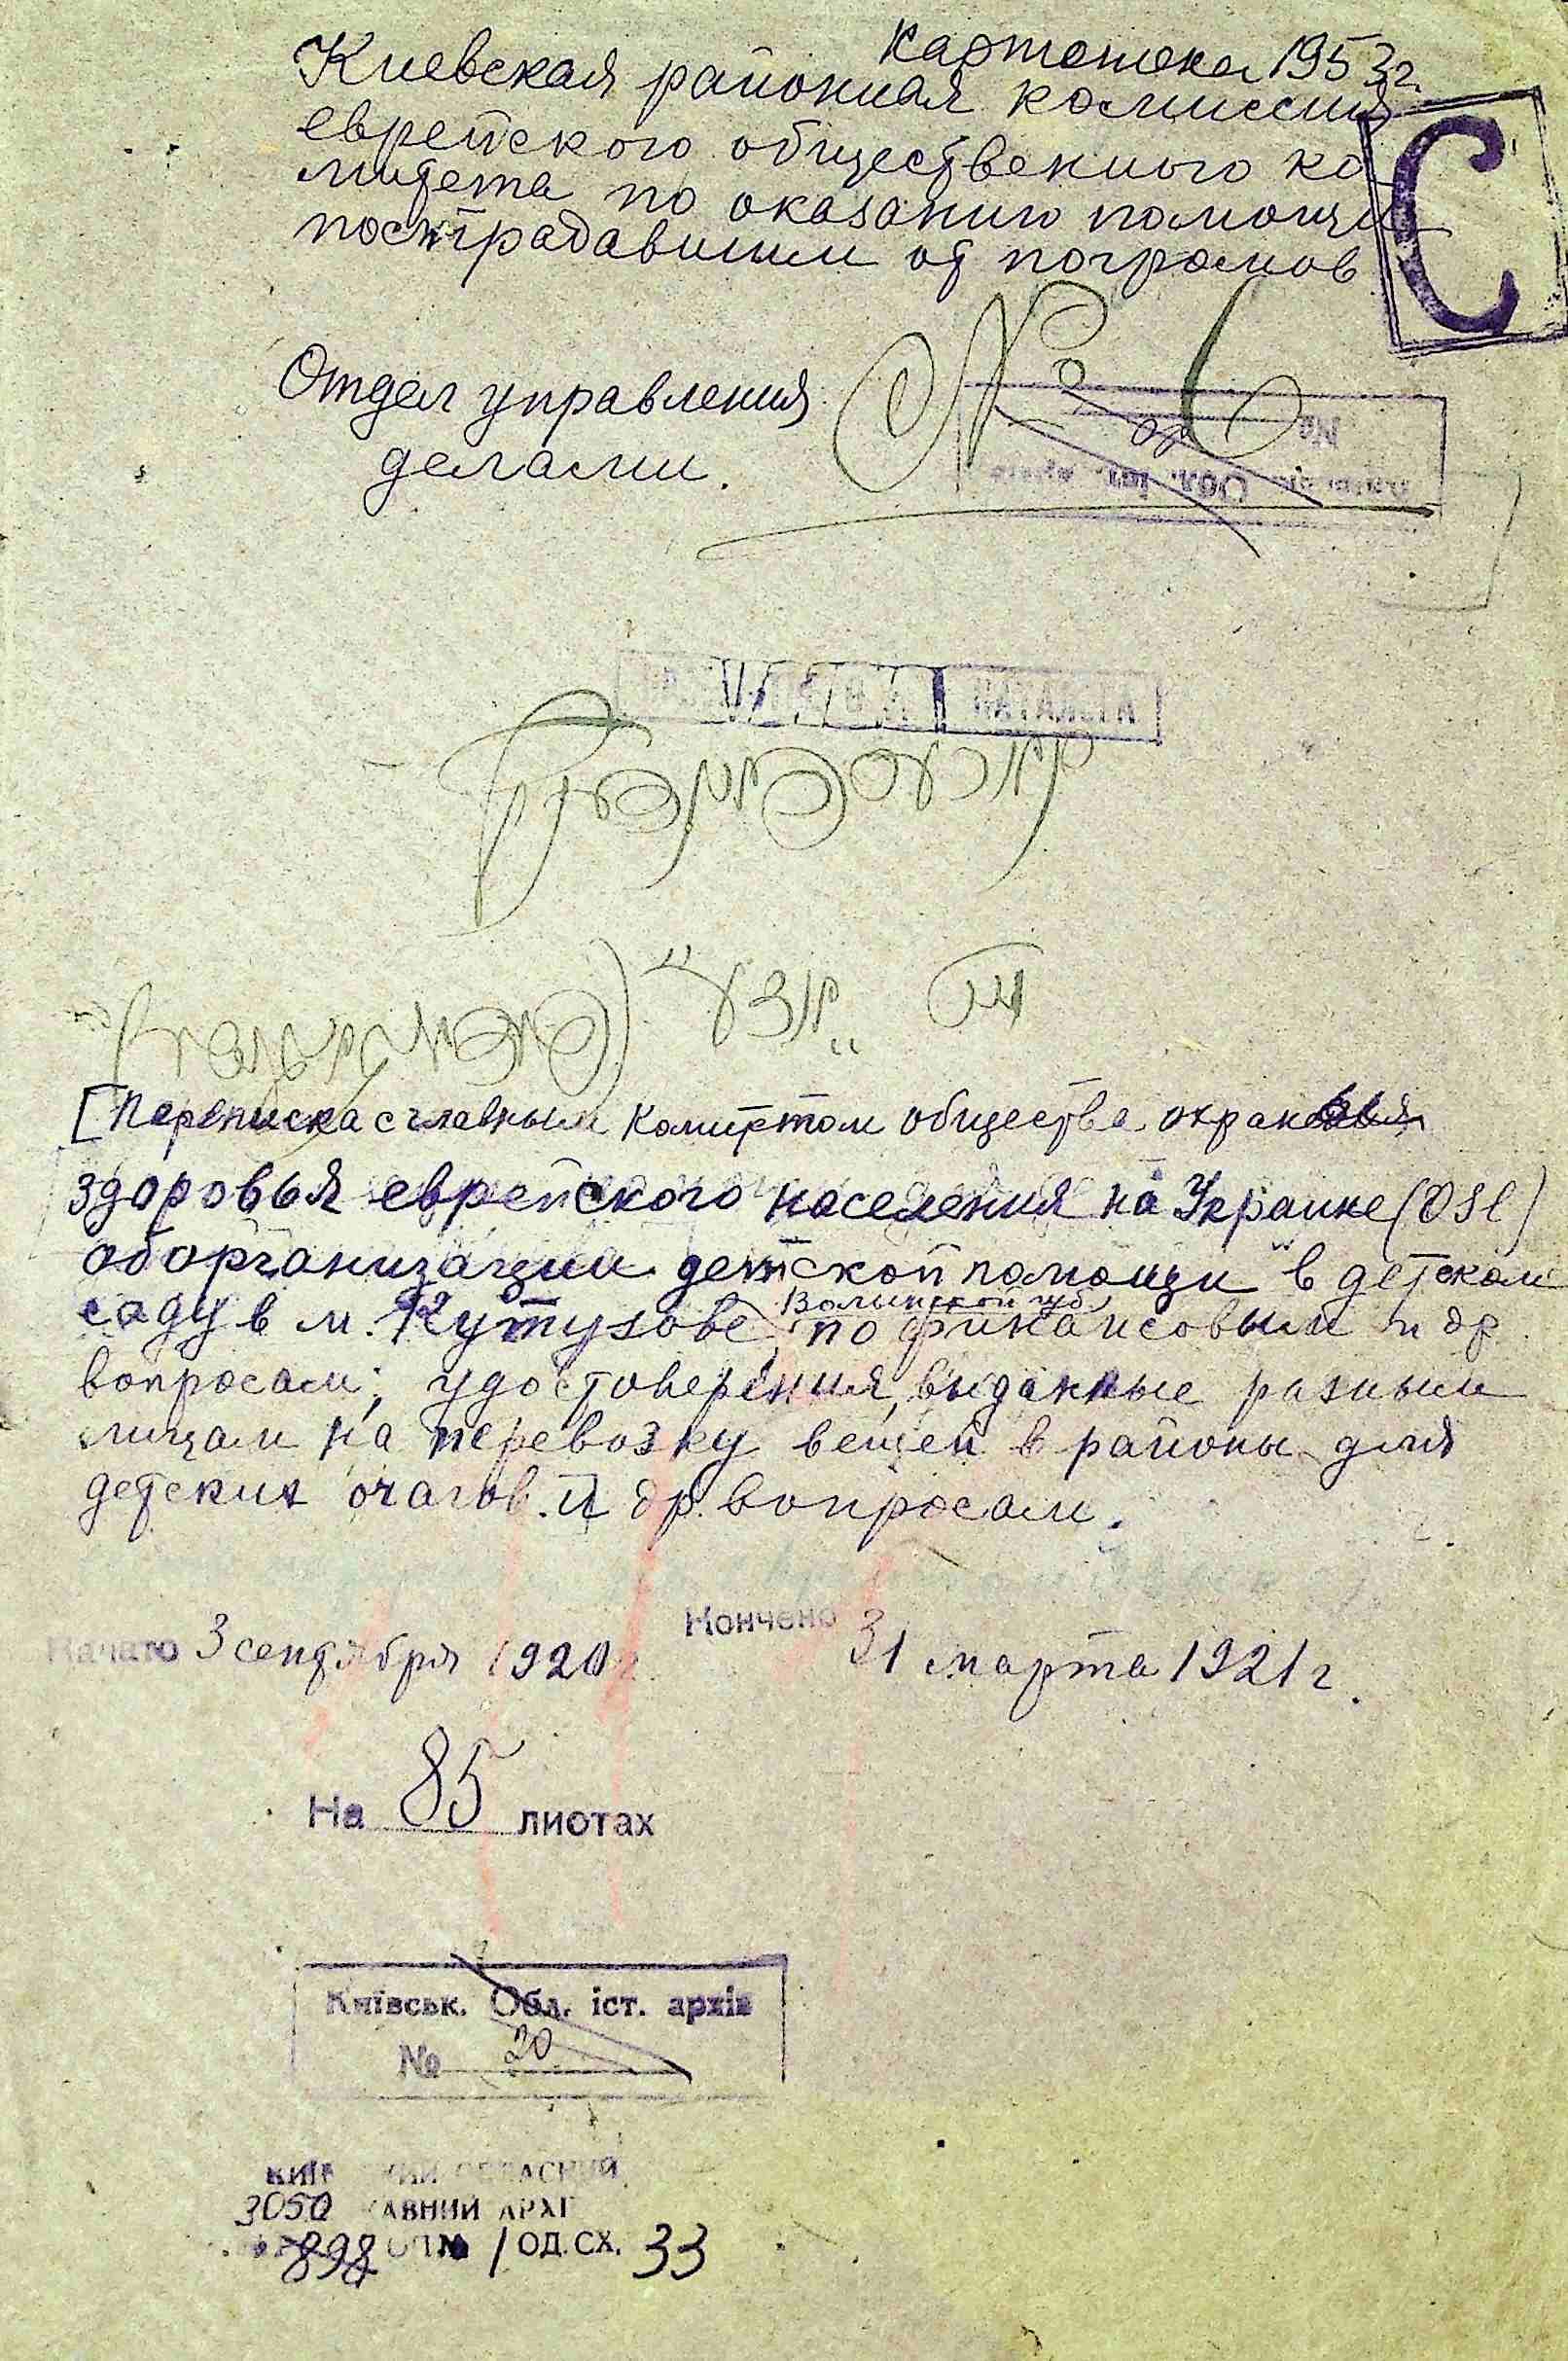 Картотека 1953г.
Киевская районная комиссия
еврейского общественного ко-
митета по оказанию помощи
пострадавшим от погромов
С
Отдел управления
делами.
№ 6
Обл. іст. архів
№
[Переписка с главным комитетом общества охранения
здоровья еврейского населения на Украине (OSE)
об организации детской помощи в детском
саду в м. Кутузове Волынской губ. по финансовым и др
вопросам; удостоверения, выданные разным
лицам на перевозку вещей в районы для
детских очагов и др. вопросам.
Начато 3 сентября 1920г. Кончено 31 марта 1921 г.
На 85 листах
Київськ. Обл. іст. архів
№ 20
КИЇВСЬКИЙ ОБЛАСНИЙ
3050 ДЕРЖАВНИЙ АРХІВ
898 ОП № 1 ОД. СХ. 33